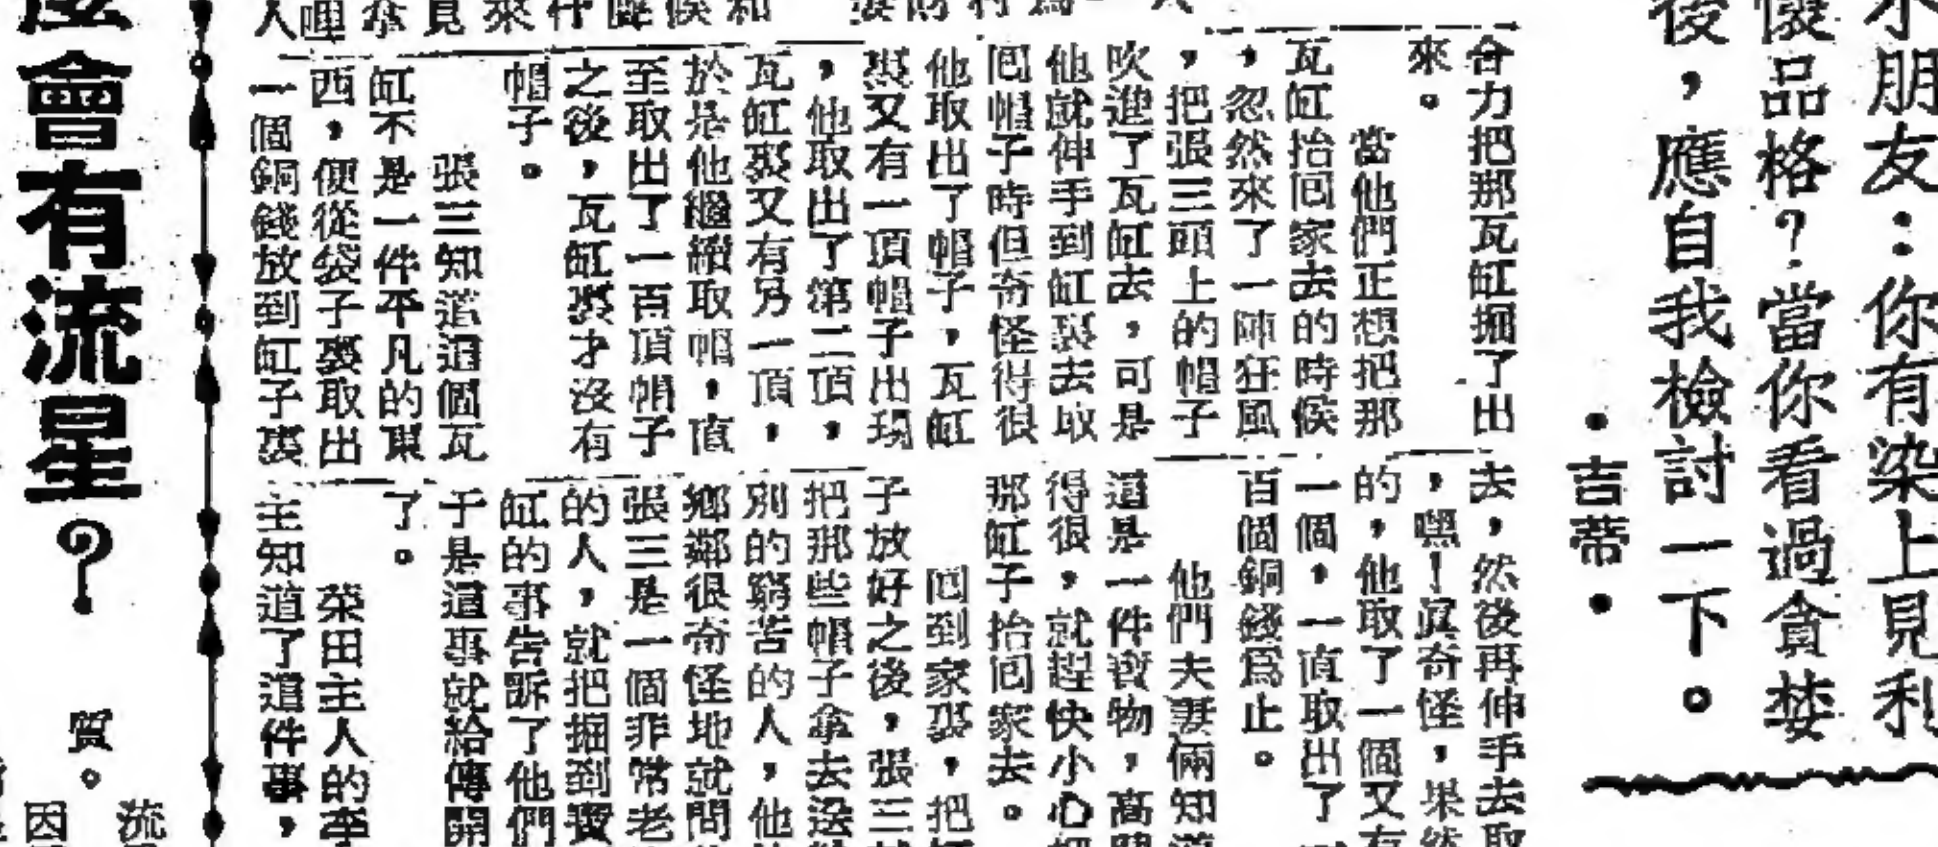 朋友：你有染上見利
品格？當你看過貪婪
後，應自我檢討一下。
•吉蒂•
合力把那瓦缸掘了出
來。
當他們正想把那
瓦缸抬囘家去的時候
，忽然來了一陣狂風
，把張三頭上的帽子
吹進了瓦缸去，可是
他就伸手到缸裏去取
囘帽子時但奇怪得很
他取出了帽子，瓦缸
裏又有一頂帽子出現
，他取出了第二頂，
瓦缸裏又有另一頂，
於是他繼續取帽，直
至取出了一百頂帽子
之後，瓦缸裏才沒有
帽子。
張三知道這個瓦
缸不是一件平凡的東
西，便從袋子裏取出
一個銅錢放到缸子裏
去，然後再伸手去取
，嘿！眞奇怪，果然
的，他取了一個又有
一個，一直取出了
百個銅錢爲止。
他們夫妻倆知道
這是一件寶物，高興
得很，就趕快小心把
那缸子抬囘家去。
囘到家裏，把
子放好之後，張三
把那些帽子拿去送
別的窮苦的人，他
鄉鄰很奇怪地就問
張三是一個非常老
的人，就把掘到寶
缸的事告訴了他們
于是這事就給傳開
了。
荣田主人的李
主知道了這件事，
會有流星？
質。
流
因